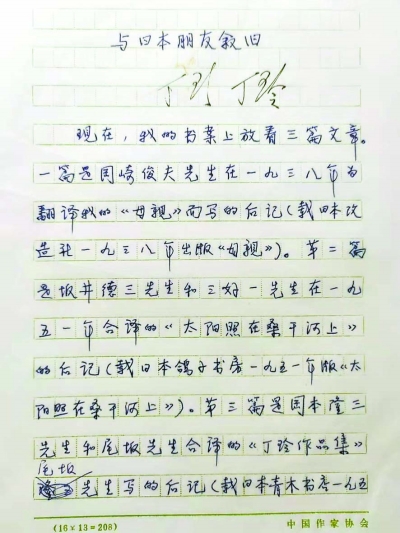 与日本朋友叙旧
丁玲 丁玲
现在，我的书桌上放着三篇文章。
一篇是冈崎俊夫先生在一九三八年为
翻译我的《母亲》而写的后记（载日本改
造社一九三八年出版《母亲》）。第二篇
是坂井德三先生和三好一先生在一九
五一年合译的《太阳照在桑干河上》
的后记（载日本鸽子书房一九五一年版《太
阳照在桑干河上》）。第三篇是冈本隆三
先生和尾坂先生合译的《丁玲作品集》
尾坂
先生写的后记（载日本青木书店一九五
(16×13=208)
中国作家协会